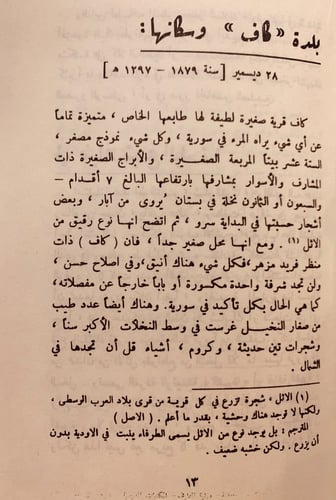 بلدة «كاف» وسكانها:
٢٨ ديسمبر [ سنة ١٨٧٩ - ١٢٩٧ ه ]
كاف قرية صغيرة لطيفة لها طابعها الخاص ، متميزة تماماً
عن أي شيء يراه المرء في سورية ، وكل شيء نموذج مصغر ،
الستة عشر بيتاً المربعة الصغيرة ، والأبراج الصغيرة ذات
المشارف والأسوار بمشارفها بارتفاعها البالغ ٧ أقدام -
والسبعون أو الثانون نخلة في بستان يُروى من آبار ، وبعض
أشجار حسبتها في البداية سرو ، ثم اتضح انها نوع رقيق من
الاثل (١) . ومع انها محل صغير جداً ، فان ( كاف ) ذات
منظر فريد مزهر ، فكل شيء هناك أنيق ، وفي اصلاح حسن ،
ولن تجد شرفة واحدة مكسورة أو باباً خارجاً عن مفصلاته ،
كما هي الحال بكل تأكيد في سورية . وهناك أيضاً عدد طيب
من صغار النخيل غرست في وسط النخلات الأكبر سناً ،
وشجرات تين حديثة ، وكروم ، أشياء قل أن تجدها في
الشمال .
(١) الاثل ، شجرة تزرع في كل قرية من قرى بلاد العرب الوسطى ،
ولكنها لا توجد هناك وحشية ، بقدر ما أعلم . ( الاصل )
المترجم : بل يوجد نوع من الاثل يسمى الطرفاء ينبت في الاودية بدون
أن يزرع . ولكن خشبه ضعيف .
١٣